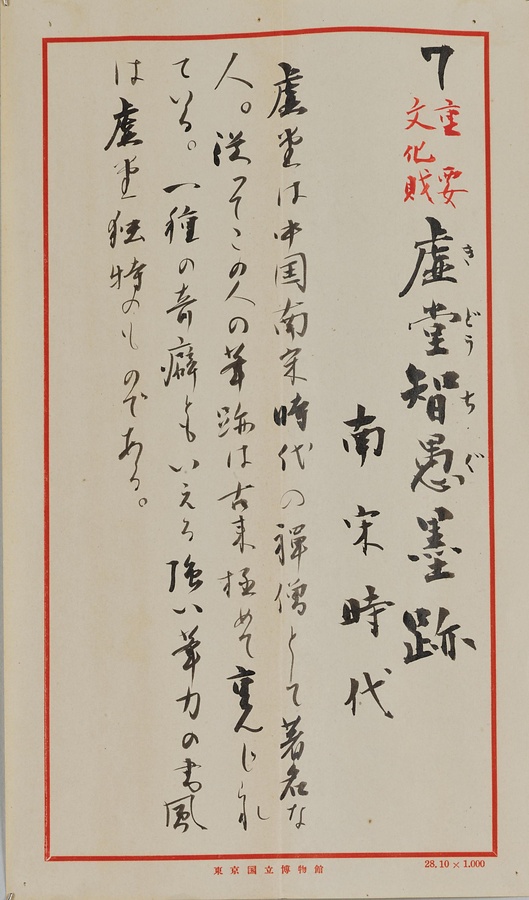 7 重要
文化財
虚堂智愚墨跡
きどうちぐ
南宋時代
虚堂は中国南宋時代の禅僧として著名な
人。従ってこの人の筆跡は古来極めて重んじられ
ている。一種の奇癖ともいえる強い筆力の書風
は虚堂独特のものである。
東京国立博物館
28.10×1.000